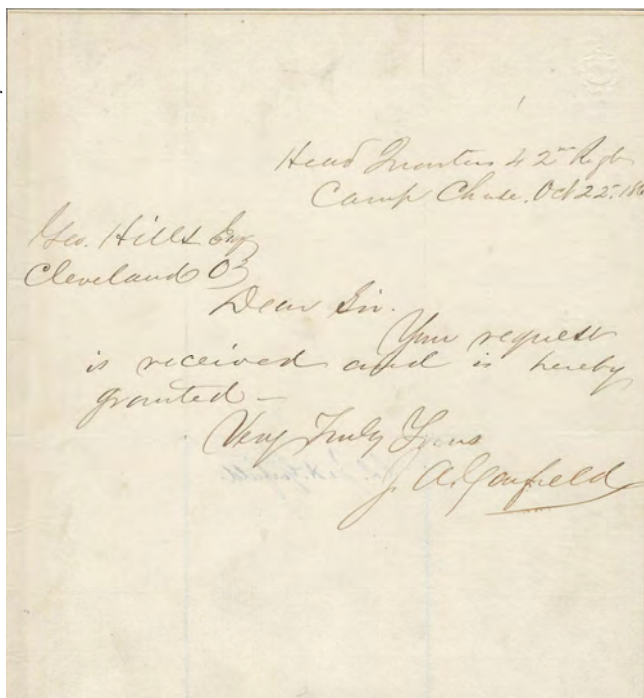 Head Quarters 42nd Regt
Camp Chase. Oct 22. 186
Geo. Hills Esq
Cleveland O
Dear Sir.
Your request
is received and is hereby
granted —
Very Truly Yours
J. A. Garfield